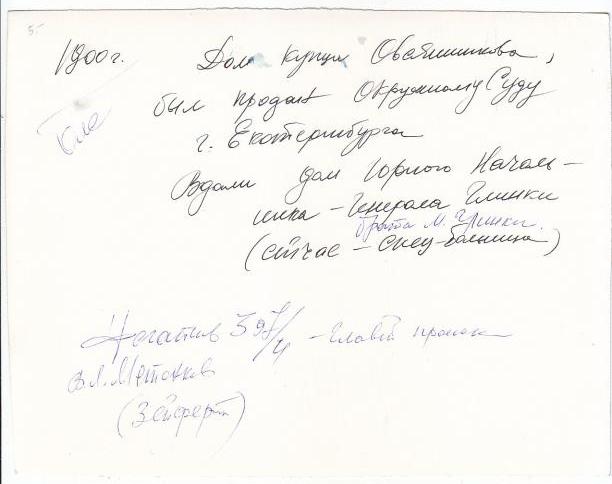 5-
1900г. Дом купца Овсянникова,
был продан Окружному Суду
г. Екатеринбурга
Вдали дом Горного Началь-
ника - Генерала Глинки
брата М. Глинки.
(сейчас - спец-больница)
Негатив 397/4 - Главн
Вл. Метенков
(Зейферт)